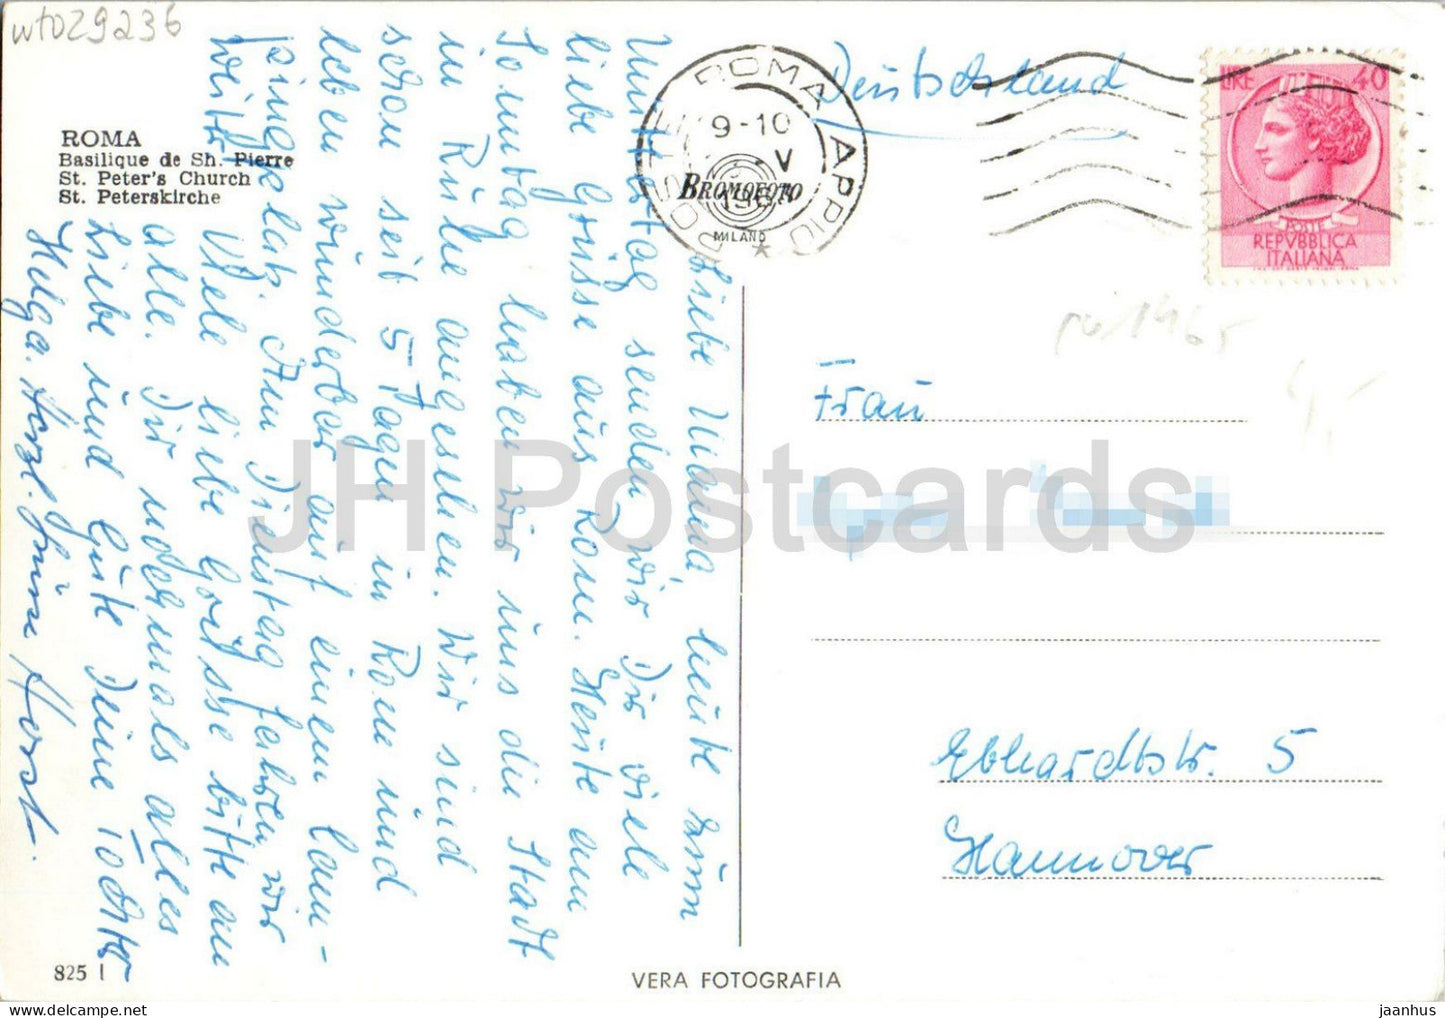 wt029236
ROMA
Basilique de Sh. Pierre
St. Peter's Church
St. Peterskirche
ROMA APPIO
9-10
V
BROMOFOTO
MILANO
Deutschland
LIRE 40
POSTE
REPVBBLICA
ITALIANA
Liebe Mama heute zum
Muttertag senden wir Dir viele
liebe Grüsse aus Rom. Heute am
Sonntag haben wir uns die Stadt
in Ruhe angesehen. Wir sind
schon seit 5 Tagen in Rom und
leben wunderbar auf einem Cam-
pingplatz. Am Dienstag fahren wir
weiter. Viele liebe Grüsse bitte an
alle. Dir nochmals alles
Liebe und Gute Deine Töchter
Helga. Herzl. Grüsse Horst.
1965
Frau
Ebhardtstr. 5
Hannover
JH Postcards
825 I
VERA FOTOGRAFIA
www.delcampe.net
jaanhus